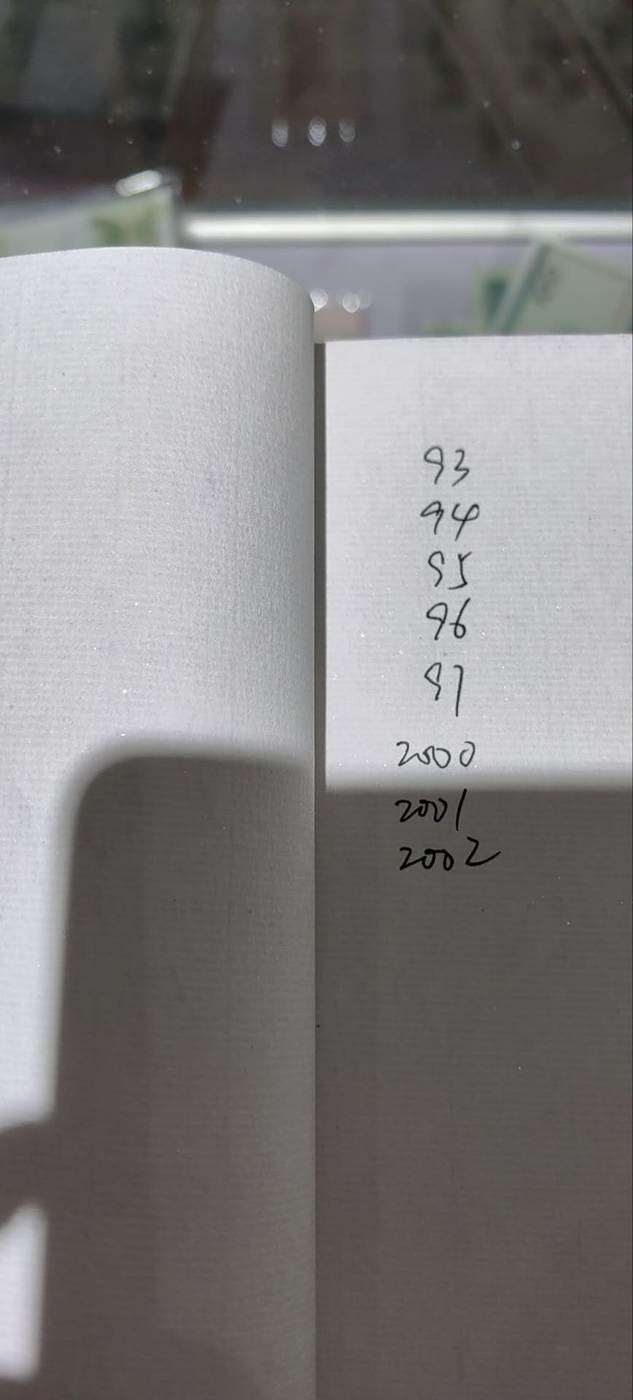 93
94
95
96
97
2000
2001
2002